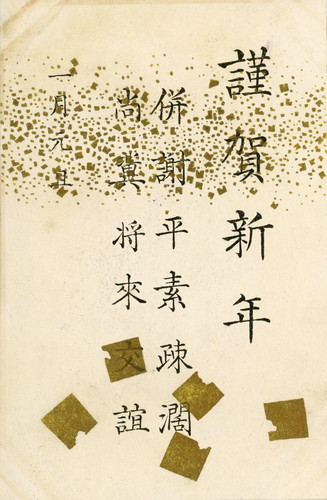 謹賀新年
併謝平素疎濶
尚冀将來交誼
一月元旦